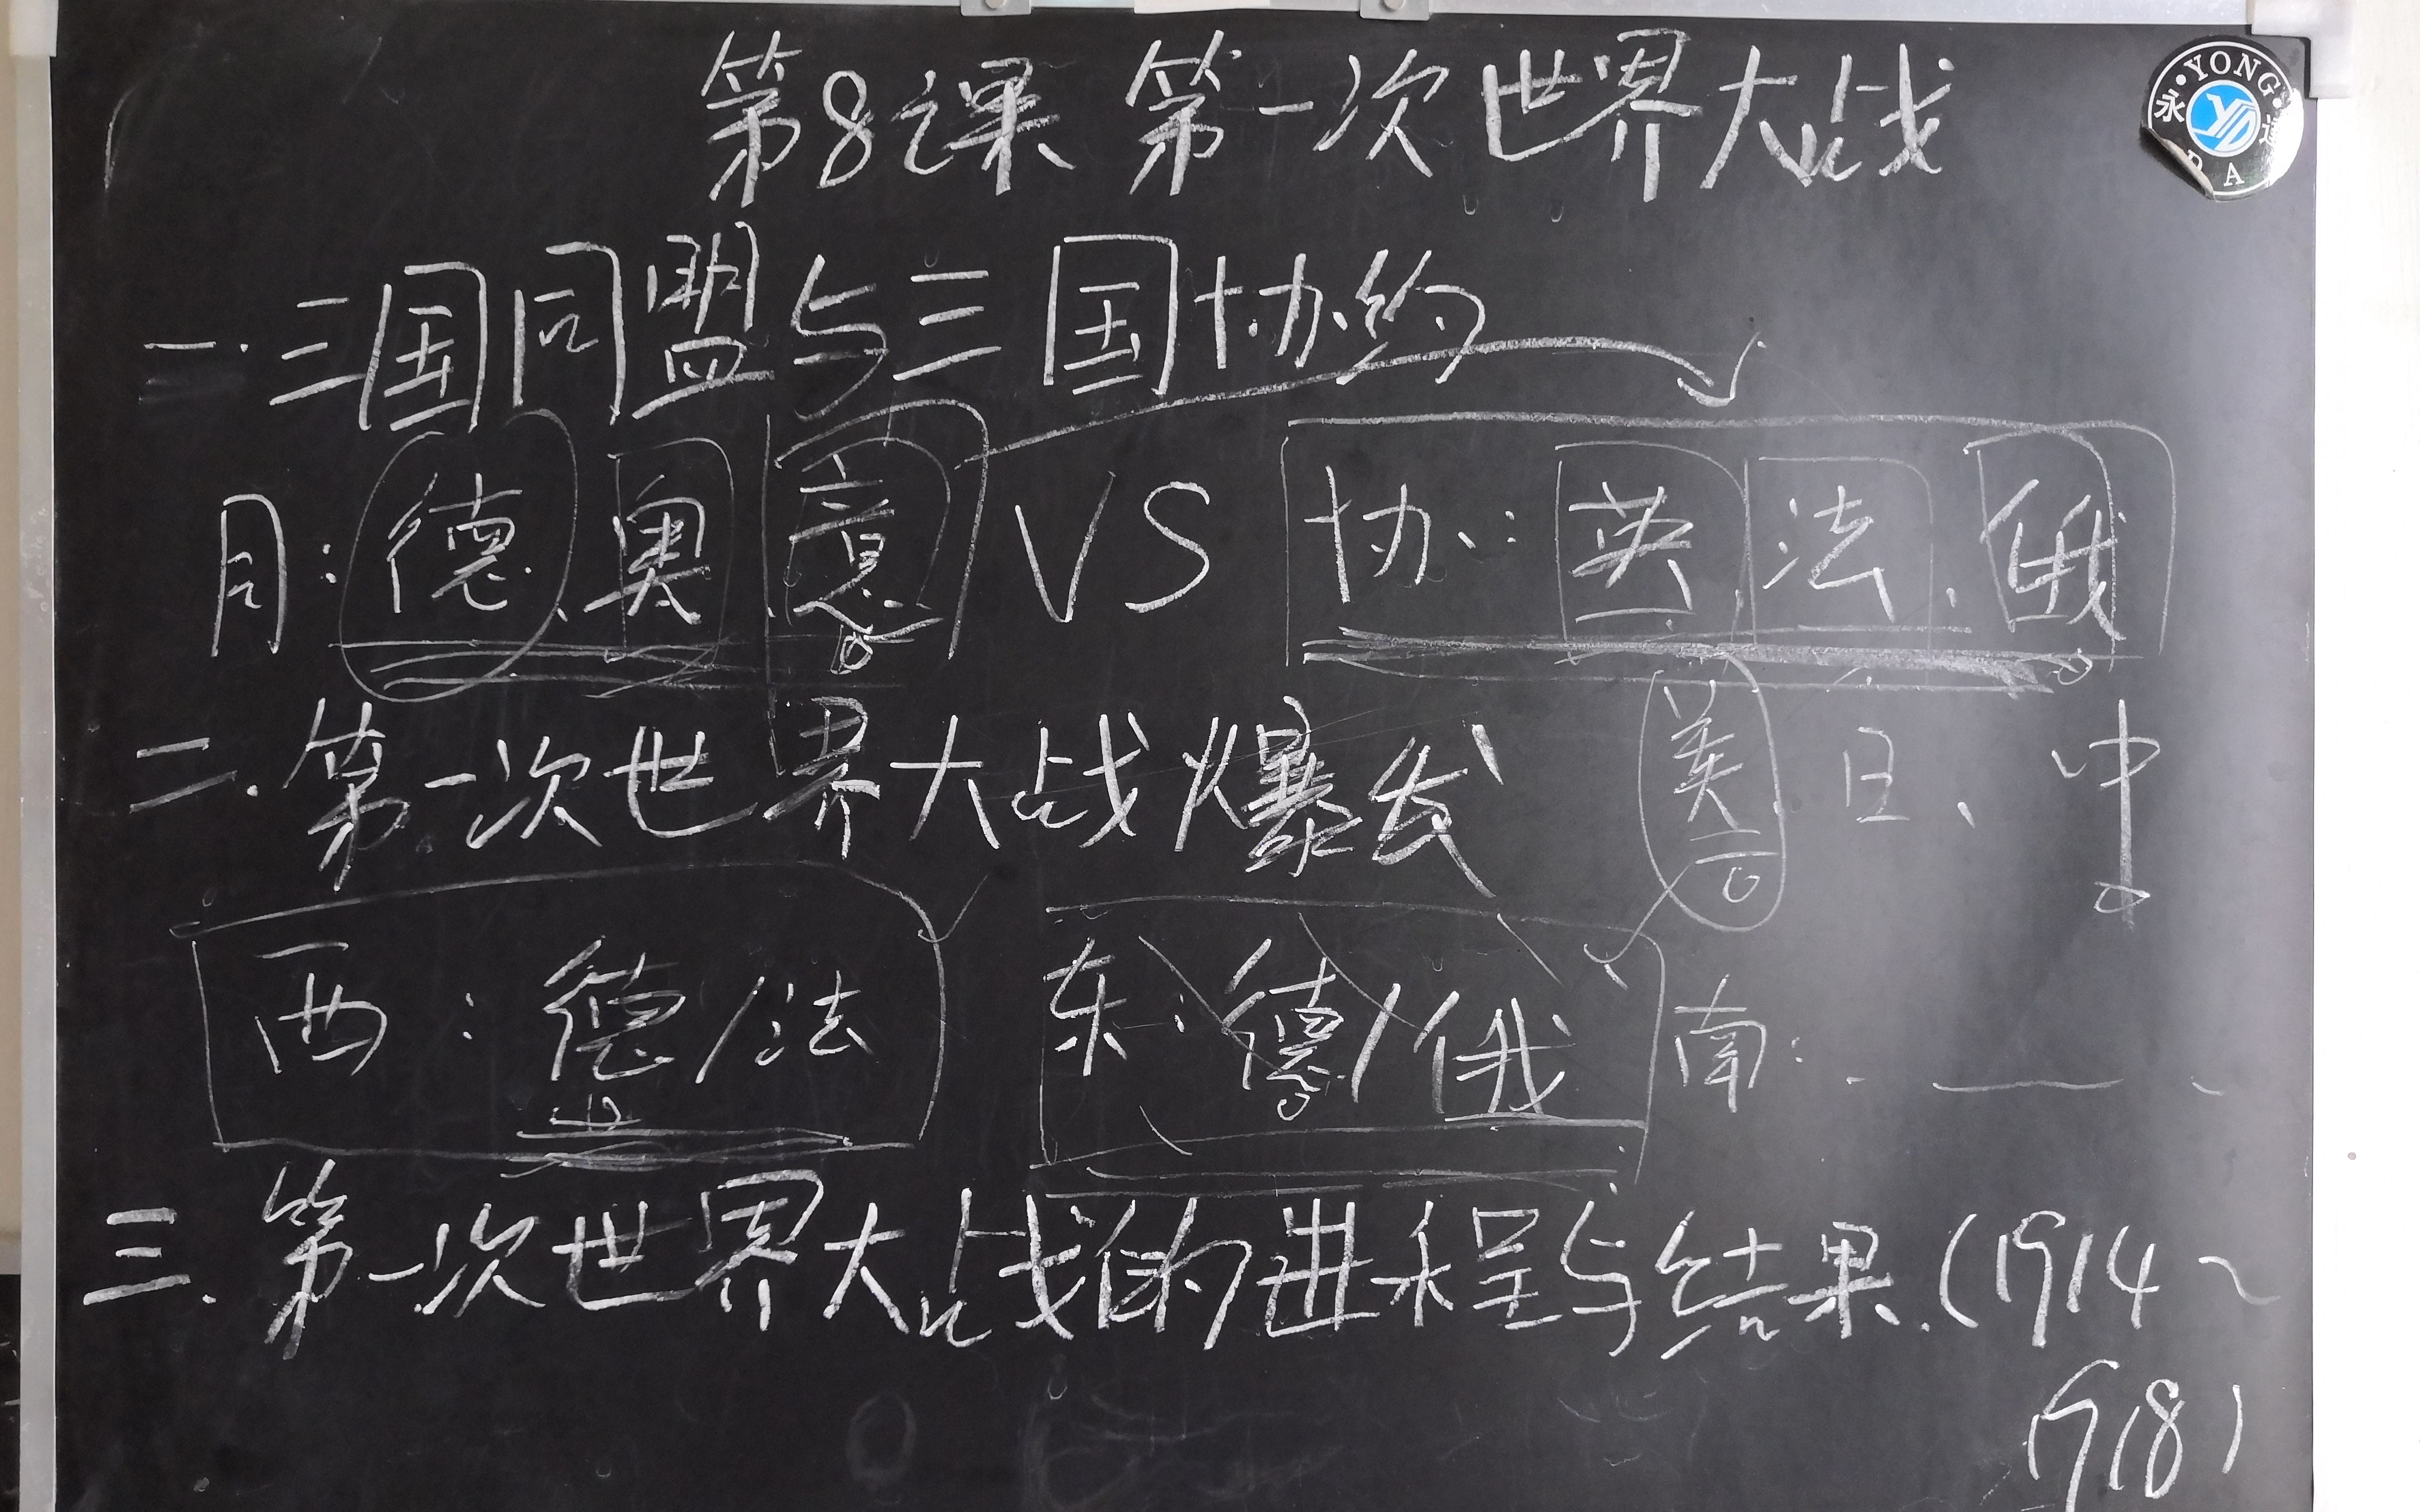 第8课 第一次世界大战
YONG
永
DA
一.三国同盟与三国协约
同:德、奥、意 VS 协:英、法、俄
二.第一次世界大战爆发
美 日、中
西:德/法 东:德/俄 南:
三.第一次世界大战的进程与结果.(1914~
1918)